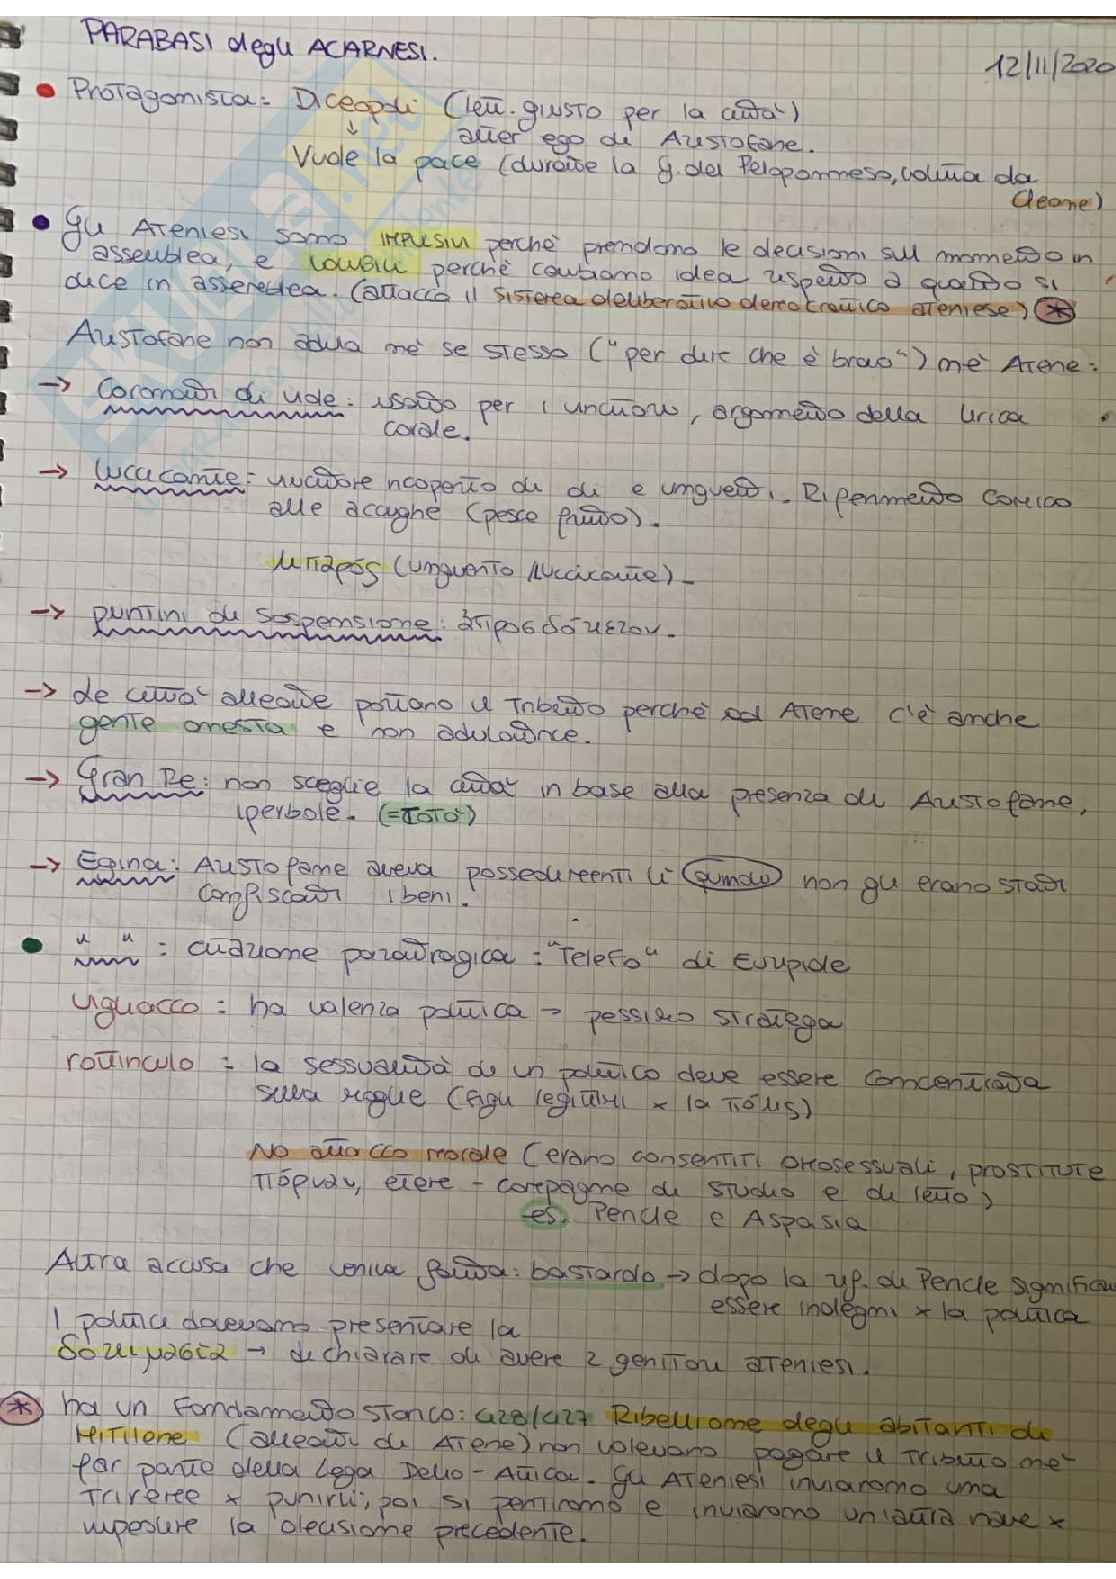 PARABASI degli ACARNESI.
12/11/2020
• Protagonista: Diceopoli (lett. giusto per la città)
↓ alter ego di Aristofane.
Vuole la pace (durante la g. del Peloponneso, voluta da
Cleone)
• Gli Ateniesi sono impulsivi perchè prendono le decisioni sul momento in
assemblea, e volubili perchè cambiano idea rispetto a quanto si
dice in assemblea. (attacco il sistema deliberativo democratico ateniese) *
Aristofane non adula nè se stesso ("per dire che è bravo") nè Atene:
→ Coronati di viole: usato per i vincitori, argomento della lirica
corale.
→ luccicante: vincitore ricoperto di oli e unguenti. Riferimento comico
alle acciughe (pesce fritto).
λιπαρός (unguento luccicante) -
→ puntini di sospensione: ἀπροσδόκετον.
→ Le città alleate portano il tributo perchè ad Atene c'è anche
gente onesta e non adulatrice.
→ Gran Re: non sceglie la città in base alla presenza di Aristofane,
iperbole. (=τοτο')
→ Egina: Aristofane aveva possedimenti lì quindi non gli erano stati
confiscati i beni.
• " " : citazione paratragica: "Telefo" di Euripide
vigliacco: ha valenza politica → pessimo stratega
rottinculo = la sessualità di un politico deve essere concentrata
sulla moglie (figli legittimi x la πόλις)
No attacco morale (erano consentiti omosessuali, prostitute
πόρναι, etere - compagne di studio e di letto)
es. Pericle e Aspasia
Altra accusa che veniva fatta: bastardo → dopo la rif. di Pericle significav
essere indegni x la politica
I politici dovevano presentare la
δοκιμασία → dichiarare di avere 2 genitori ateniesi.
* ha un fondamento storico: 428/427 Ribellione degli abitanti di
Mitilene (alleati di Atene) non volevano pagare il tributo nè
far parte della Lega Delio-Attica. Gli Ateniesi inviarono una
trireme x punirli; poi si pentirono e inviarono un'altra nave x
impedire la decisione precedente.